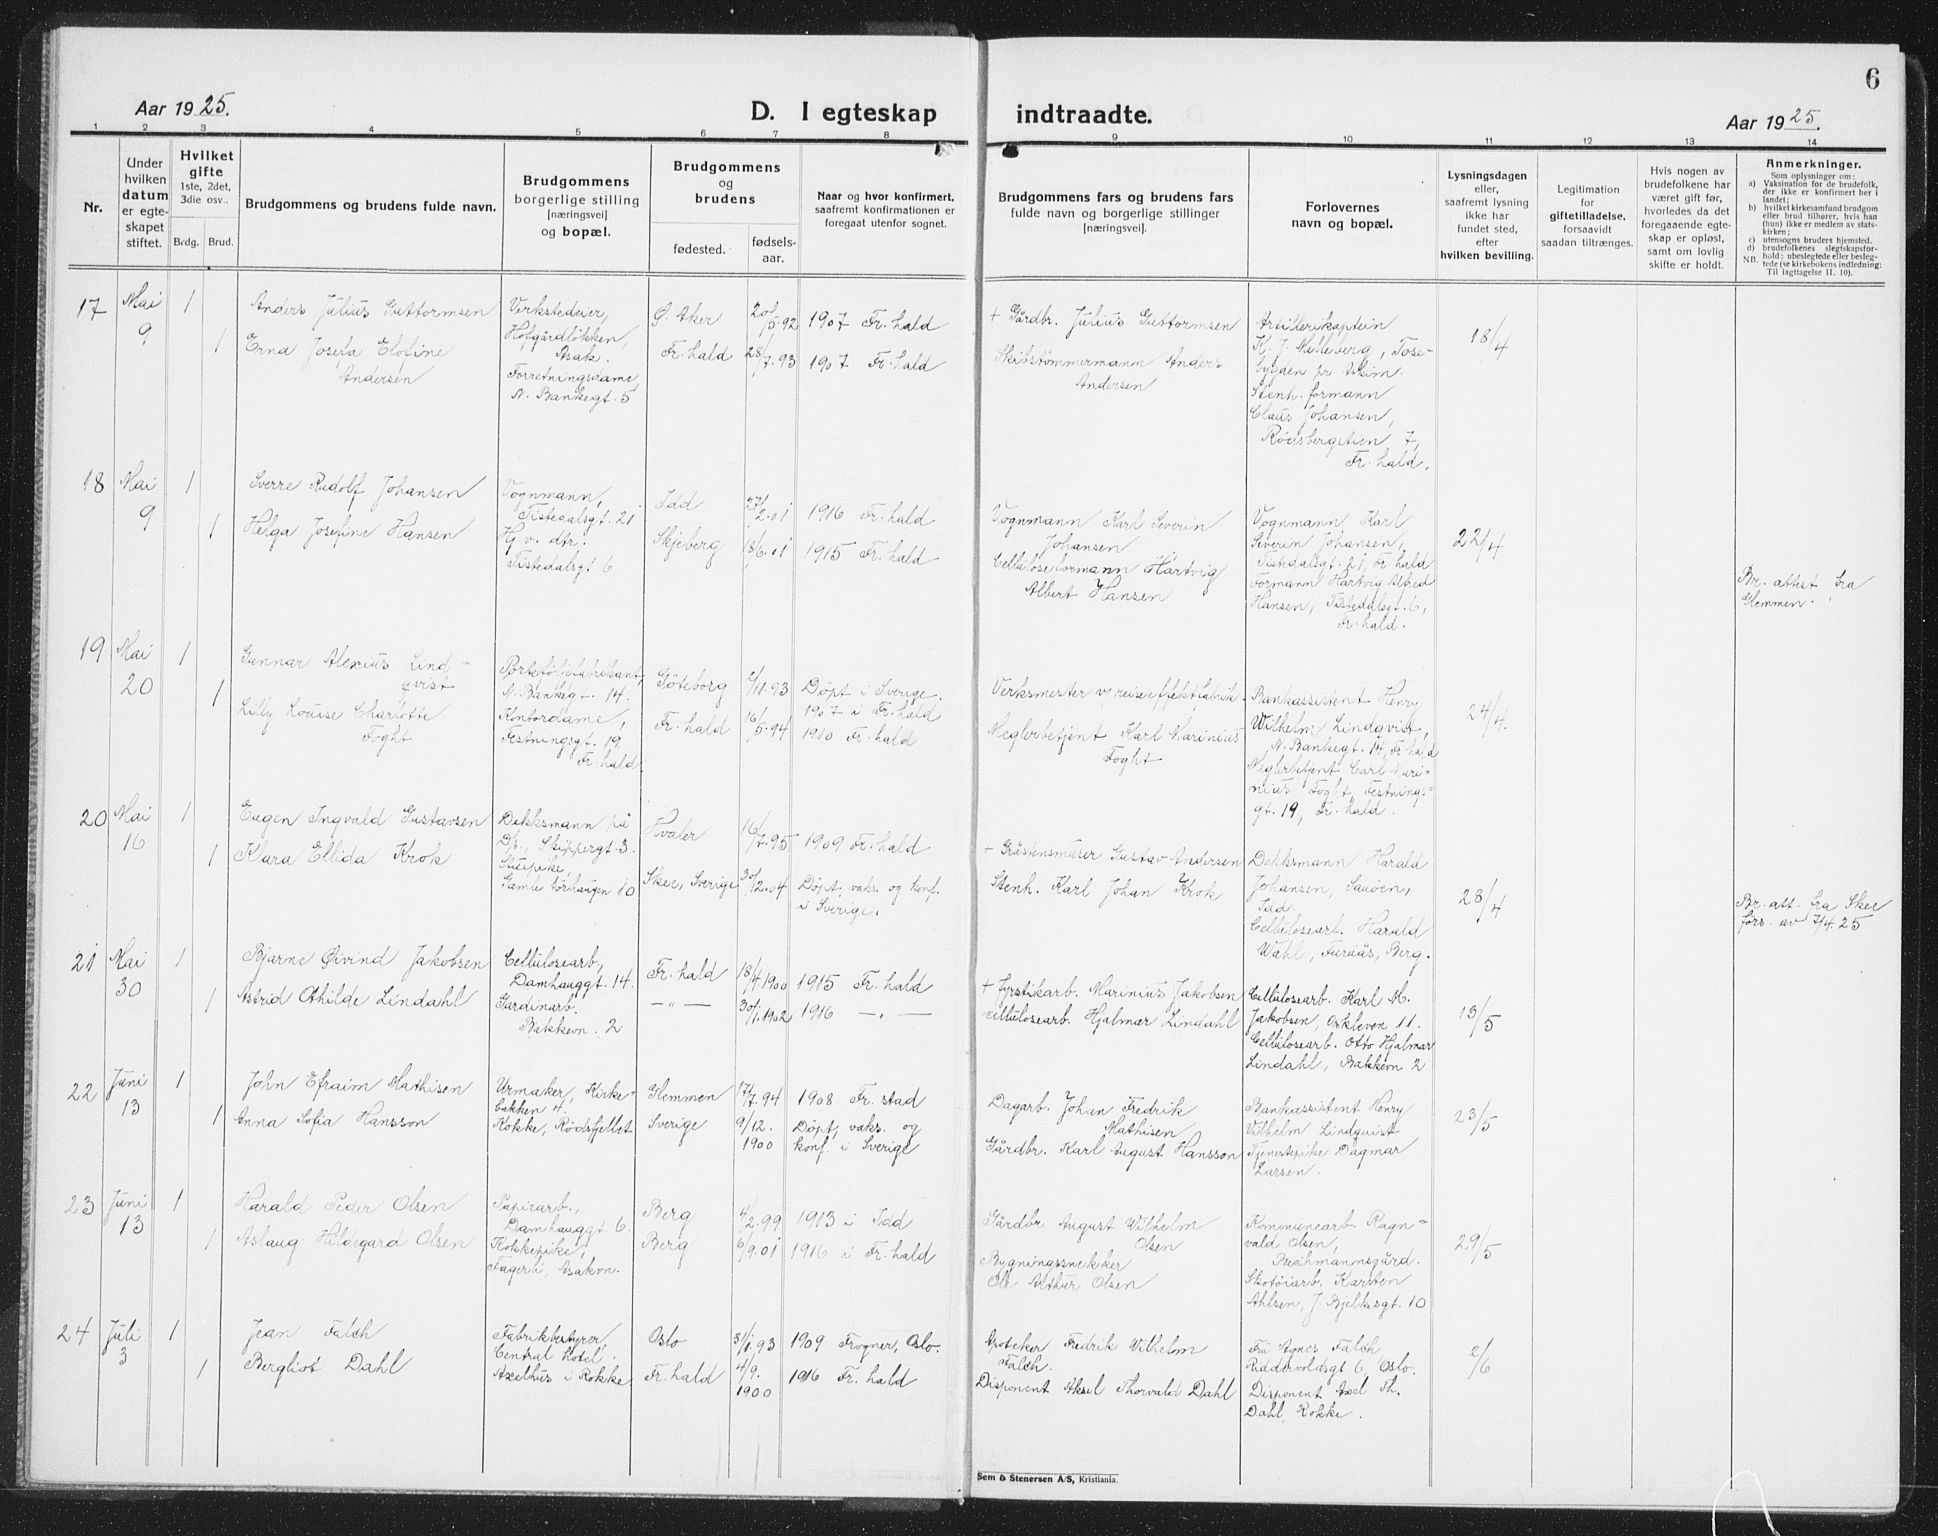 6
Aar 1925.
D. I egteskap indtraadte.
Aar 1925.
1 2 3 4 5 6 7 8 9 10 11 12 13 14
Nr.
Under hvilken datum er egteskapet stiftet.
Hvilket gifte
1ste, 2det, 3die osv..
Brdg. Brud.
Brudgommens og brudens fulde navn.
Brudgommens borgerlige stilling [næringsvei] og bopæl.
Brudgommens og brudens
fødested.
fødselsaar.
Naar og hvor konfirmert, saafremt konfirmationen er foregaat utenfor sognet.
Brudgommens fars og brudens fars fulde navn og borgerlige stillinger [næringsvei].
Forlovernes navn og bopæl.
Lysningsdagen eller, saafremt lysning ikke har fundet sted, efter hvilken bevilling.
Legitimation for giftetilladelse, forsaavidt saadan tiltrænges.
Hvis nogen av brudefolkene har været gift før, hvorledes da det foregaaende egteskap er opløst, samt om lovlig skifte er holdt.
Anmerkninger.
Som oplysninger om:
a) Vaksination for de brudefolk, der ikke er konfirmert her i landet;
b) hvilket kirkesamfund brudgom eller brud tilhører, hvis han (hun) ikke er medlem av statskirken;
c) utensogns bruders hjemsted.
d) brudefolkenes slegtskapsforhold: ubeslegtede eller beslegtede (se kirkebokens indledning:
NB. Til iagttagelse II. 10).
17 Mai 9 1 1
Anders Julius Guttormsen
Erna Josefa Elofine Andersen
Verkstedeier, Hofgårdløkken, Asak.
Forretningsdame, N. Bankegt. 5
Ø. Aker 20/5.92 1907 Fr.hald
Fr.hald 28/7.93 1907 Fr.hald
+ Gårdbr. Julius Guttormsen
Skibstømmermann Anders Andersen
Artillerikaptein K. J. Melleberg, Tosebygden pr. Askim.
Stenh. formann Claus Johansen, Rødsbergstien 7, Fr.hald.
18/4
18 Mai 9 1 1
Sverre Rudolf Johansen
Helga Josefine Hansen
Vognmann, Tistedalsgt. 21
Hj.v. dtr. Tistedalsgt 6
Idd 27/2.01 1916 Fr.hald
Skjeberg 18/6.01 1915 Fr.hald
Vognmann Karl Severin Johansen
Celluloseformann Hartvig Albert Hansen
Vognmann Karl Severin Johansen, Tistedalsgt. 21, Fr.hald
Formann Hartvig Alfred Hansen, Tistedalsgt. 6, Fr.hald.
22/4
Br. attest fra Glemmen.
19 Mai 20 1 1
Gunnar Alexius Lindqvist
Lilly Louise Charlotte Foght
Porteføljefabrikant, N. Bankegt. 14.
Kontordame, Festningsgt. 19 Fr.hald
Göteborg /11.93 Døpt i Sverige. 1907 i Fr.hald
Fr.hald 16/5.94 1910 Fr.hald
Verksmester v/reiseeffektfabrik
Meglerbetjent Karl Marinius Foght
Bankassistent Henry Wilhelm Lindqvist, N. Bankegt. 14, Fr.hald
Meglerbetjent Carl Marinius Foght, Festningsgt. 19, Fr.hald.
24/4.
20 Mai 16 1 1
Eugen Ingvald Gustavsen
Klara Ellida Krok
Dekksmann på D/s., Skippergt. 3.
Stuepike, Gamle Tørhaugen 10
Hvaler 16/7.95 1909 Fr.hald
Skee, Sverige 30/12.04 Døpt, vaks. og konf. i Sverige.
+ Gråstensmurer Gustav Andersen
Stenh. Karl Johan Krok
Dekksmann Harald Johansen, Sauøen, Idd
Cellulosearb. Harald Wahl, Furuås, Berg.
28/4
Br. att. fra Skee førs. av 7/4.25
21 Mai 30 1 1
Bjarne Øivind Jakobsen
Astrid Othilde Lindahl
Cellulosearb, Damhauggt. 14.
Gardinarb. Bakkevn. 2
Fr.hald 18/4.1900 1915 Fr.hald
— " — 30/1.1902 1916 — " —
+ Fyrstikarb. Marinius Jakobsen
Cellulosearb. Hjalmar Lindahl
Cellulosearb. Karl M. Jakobsen, Orkleven 11.
Cellulosearb. Otto Hjalmar Lindahl, Bakkevn 2
13/5
22 Juni 13 1 1
John Efraim Mathisen
Anna Sofia Hansson
Urmaker, Kirkebakken 4.
Kokke, Rødsfjellet
Glemmen 17/7.94 1908 Fr.stad
Sverige 9/12. 1900 Døpt, vaks. og konf. i Sverige
Dagarb. Johan Fredrik Mathisen
Gårdbr. Karl August Hansson
Bankassistent Henry Vilhelm Lindquist
Tjenestepike Dagmar Larsen.
23/5
23 Juni 13 1 1
Harald Peder Olsen
Aslaug Hildegard Olsen
Papirarb., Damhauggt. 6.
Kokkepike, Fagerli, Asakvn.
Berg 4/2.99 1913 i Idd
Berg 6/9.01 1916 i Fr.hald
Gårdbr. August Wilhelm Olsen
Bygningssnekker Ole Arthur Olsen
Kommunearb. Ragnvald Olsen, Brähmannsgård.
Skotøiarb. Karsten Ahlsen, J. Bjelkesgt. 10
29/5
24 Juli 3 1 1
Jean Falch
Bergliot Dahl
Fabrikbestyrer, Central Hotel.
Axelhus i Rokke
Oslo 31/1.93 1909 Frogner, Oslo.
Fr.hald 4/9. 1900 1916 Fr.hald
Apoteker Fredrik Wilhelm Falch.
Disponent Aksel Thorvald Dahl
Fru Agnes Falch Riddervoldsgt 6, Oslo.
Disponent Axel Th. Dahl, Rokke.
2/6
Sem & Stenersen A/S, Kristiania.